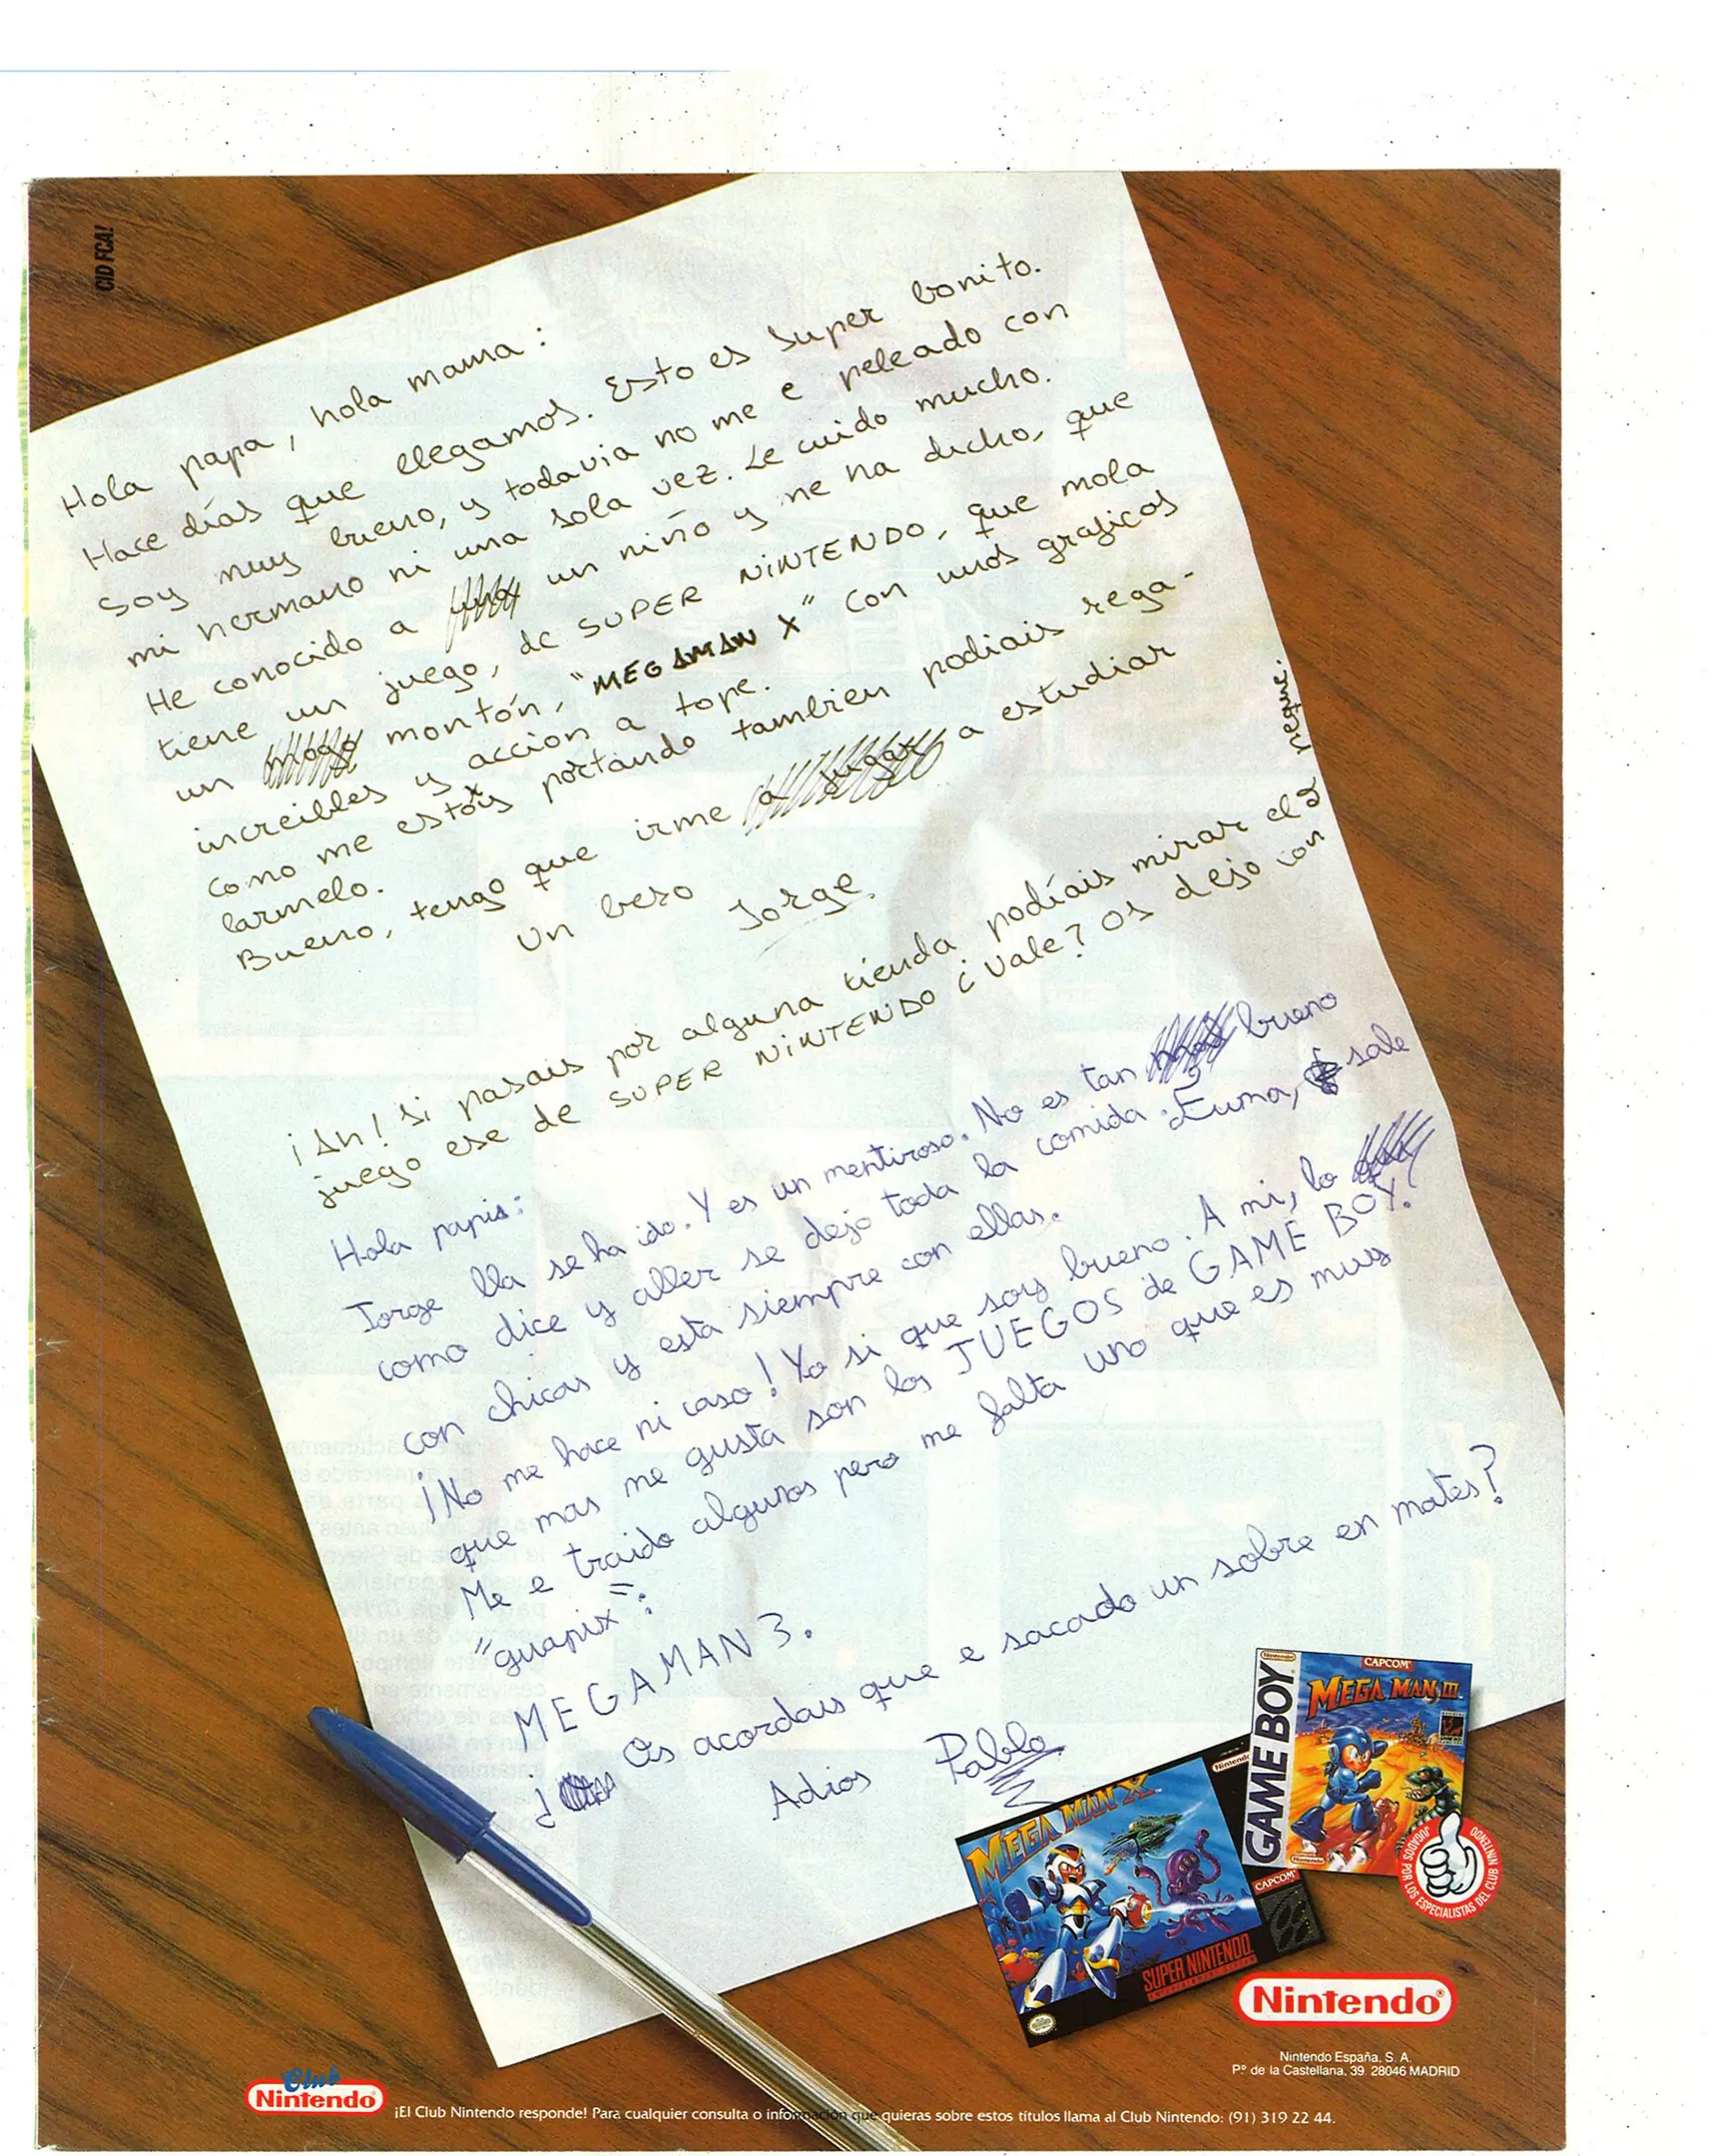 CID FCA!
Hola papa, hola mama:
Hace días que llegamos. Esto es super bonito.
Soy muy bueno, y todavia no me e peleado con
mi hermano ni una sola vez. Le cuido mucho.
He conocido a un niño y me ha dicho, que
tiene un juego, de SUPER NiNTENDO, que mola
un montón, "MEGAMAN X" con unos graficos
increibles y acción a tope.
Como me estoy portando tambien podiais rega-
larmelo.
Bueno, tengo que irme a jugar a estudiar
Un beso
Jorge
¡Ah! Si pasais por alguna tienda podíais mirar el
juego ese de SUPER NiNTENDO ¿vale? Os dejo con
peque.
Hola papis:
Jorge lla se ha ido. Y es un mentiroso. No es tan bueno
como dice y aller se dejo toda la comida. Fuma, sale
con chicas y esta siempre con ellas.
¡No me hace ni caso! Yo si que soy bueno. A mi, lo
que mas me gusta son los JUEGOS de GAME BOY.
Me e traido algunos pero me falta uno que es muy
"guapix":
MEGAMAN 3.
¿ Os acordais que e sacado un sobre en mates?
Adios Pablo
Nintendo
GAME BOY
CAPCOM
MEGA MAN III
Nintendo
MEGA MAN X
Nintendo
CAPCOM
SUPER NINTENDO
ENTERTAINMENT SYSTEM
JUGADOS POR LOS ESPECIALISTAS DEL CLUB NINTENDO
Nintendo
Nintendo España, S. A.
Pº de la Castellana, 39. 28046 MADRID
Club
Nintendo
¡El Club Nintendo responde! Para cualquier consulta o información que quieras sobre estos títulos llama al Club Nintendo: (91) 319 22 44.